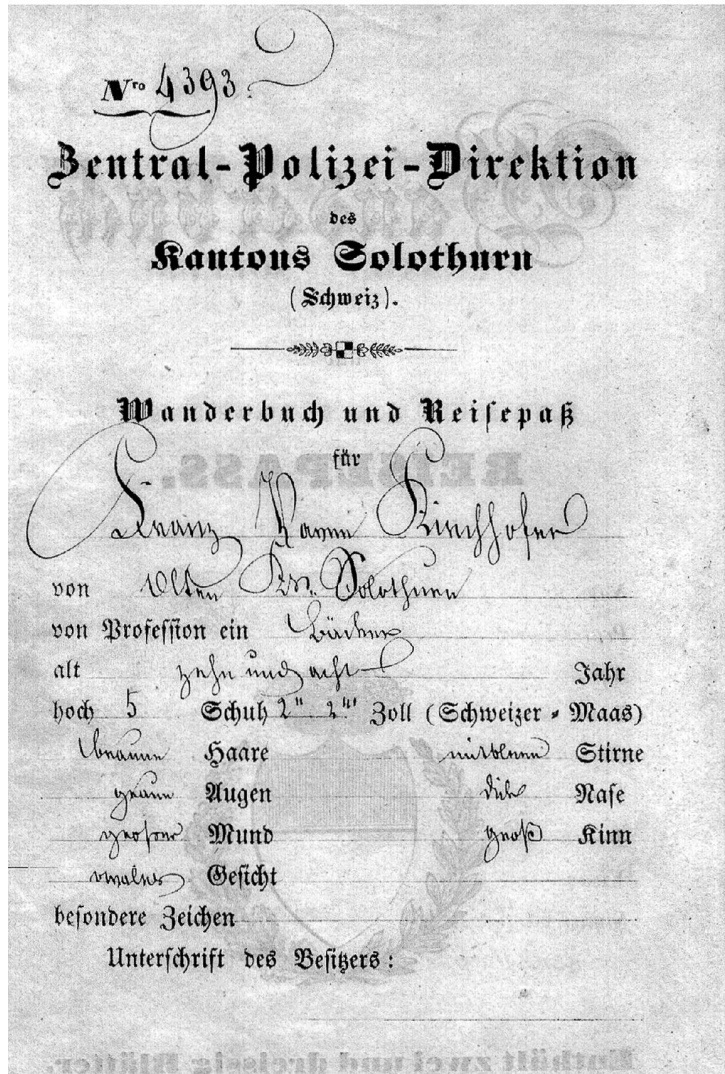 Nro 4393.
Zentral-Polizei-Direktion
des
Kantons Solothurn
(Schweiz).
Wanderbuch und Reisepaß
für
Franz Kirchhofer
von Olten Kn. Solothurn
von Profession ein Bäcker
alt zehn und acht Jahr
hoch 5 Schuh 2" 2"' Zoll (Schweizer-Maas)
braune Haare mittlere Stirne
graue Augen dicke Nase
großer Mund groß Kinn
ovales Gesicht
besondere Zeichen
Unterschrift des Besitzers:
REISEPASS.
Enthält zwei und dreissig Blätter.